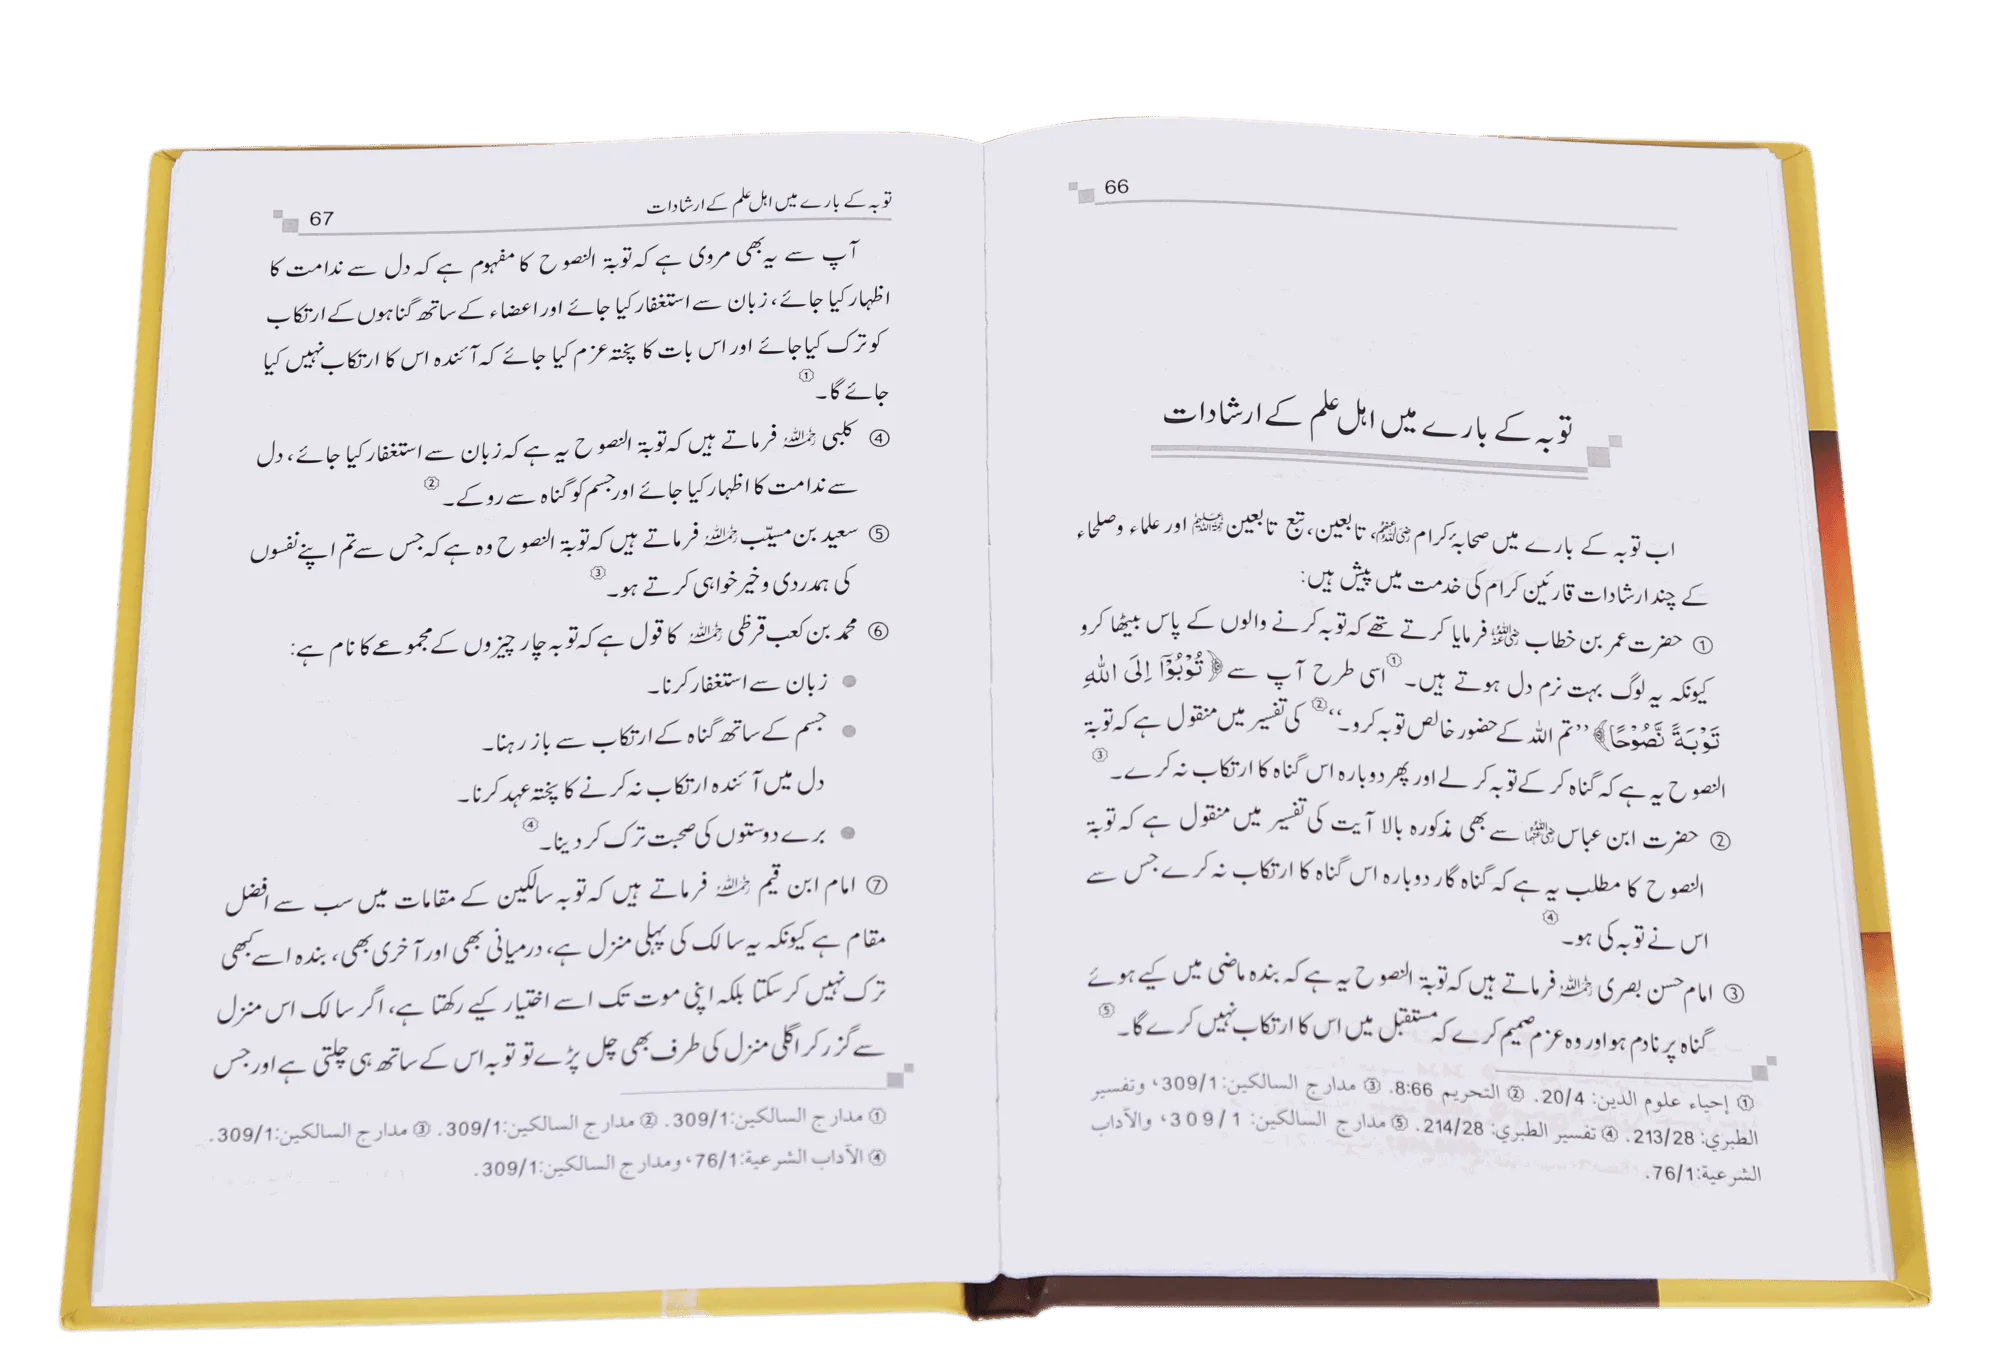 66
توبہ کے بارے میں اہل علم کے ارشادات
اب توبہ کے بارے میں صحابۂ کرام رضی اللہ عنہم، تابعین، تبع تابعین رحمۃ اللہ علیہم اور علماء وصلحاء
کے چند ارشادات قارئین کرام کی خدمت میں پیش ہیں:
① حضرت عمر بن خطاب رضی اللہ عنہ فرمایا کرتے تھے کہ توبہ کرنے والوں کے پاس بیٹھا کرو
کیونکہ یہ لوگ بہت نرم دل ہوتے ہیں۔① اسی طرح آپ سے ﴿تُوْبُوْٓا اِلَى اللّٰهِ
تَوْبَةً نَّصُوْحًا﴾ ”تم اللہ کے حضور خالص توبہ کرو۔“② کی تفسیر میں منقول ہے کہ توبۃ
النصوح یہ ہے کہ گناہ کرکے توبہ کرلے اور پھر دوبارہ اس گناہ کا ارتکاب نہ کرے۔③
② حضرت ابن عباس رضی اللہ عنہما سے بھی مذکورہ بالا آیت کی تفسیر میں منقول ہے کہ توبۃ
النصوح کا مطلب یہ ہے کہ گناہ گار دوبارہ اس گناہ کا ارتکاب نہ کرے جس سے
اس نے توبہ کی ہو۔④
③ امام حسن بصری رحمہ اللہ فرماتے ہیں کہ توبۃ النصوح یہ ہے کہ بندہ ماضی میں کیے ہوئے
گناہ پر نادم ہو اور وہ عزم صمیم کرے کہ مستقبل میں اس کا ارتکاب نہیں کرے گا۔⑤
① إحياء علوم الدين: 20/4. ② التحريم 8:66. ③ مدارج السالكين: 309/1، وتفسير
الطبري: 213/28. ④ تفسير الطبري: 214/28. ⑤ مدارج السالكين: 309/1، والآداب
الشرعية: 76/1.
توبہ کے بارے میں اہل علم کے ارشادات 67
آپ سے یہ بھی مروی ہے کہ توبۃ النصوح کا مفہوم ہے کہ دل سے ندامت کا
اظہار کیا جائے، زبان سے استغفار کیا جائے اور اعضاء کے ساتھ گناہوں کے ارتکاب
کو ترک کیا جائے اور اس بات کا پختہ عزم کیا جائے کہ آئندہ اس کا ارتکاب نہیں کیا
جائے گا۔①
④ کلبی رحمہ اللہ فرماتے ہیں کہ توبۃ النصوح یہ ہے کہ زبان سے استغفار کیا جائے، دل
سے ندامت کا اظہار کیا جائے اور جسم کو گناہ سے روکے۔②
⑤ سعید بن مسیّب رحمہ اللہ فرماتے ہیں کہ توبۃ النصوح وہ ہے کہ جس سے تم اپنے نفسوں
کی ہمدردی وخیر خواہی کرتے ہو۔③
⑥ محمد بن کعب قرظی رحمہ اللہ کا قول ہے کہ توبہ چار چیزوں کے مجموعے کا نام ہے:
● زبان سے استغفار کرنا۔
● جسم کے ساتھ گناہ کے ارتکاب سے باز رہنا۔
دل میں آئندہ ارتکاب نہ کرنے کا پختہ عہد کرنا۔
● برے دوستوں کی صحبت ترک کر دینا۔④
⑦ امام ابن قیم رحمہ اللہ فرماتے ہیں کہ توبہ سالکین کے مقامات میں سب سے افضل
مقام ہے کیونکہ یہ سالک کی پہلی منزل ہے، درمیانی بھی اور آخری بھی، بندہ اسے کبھی
ترک نہیں کرسکتا بلکہ اپنی موت تک اسے اختیار کیے رکھتا ہے، اگر سالک اس منزل
سے گزر کر اگلی منزل کی طرف بھی چل پڑے تو توبہ اس کے ساتھ ہی چلتی ہے اور جس
① مدارج السالكين: 309/1. ② مدارج السالكين: 309/1. ③ مدارج السالكين: 309/1.
④ الآداب الشرعية: 76/1، ومدارج السالكين: 309/1.